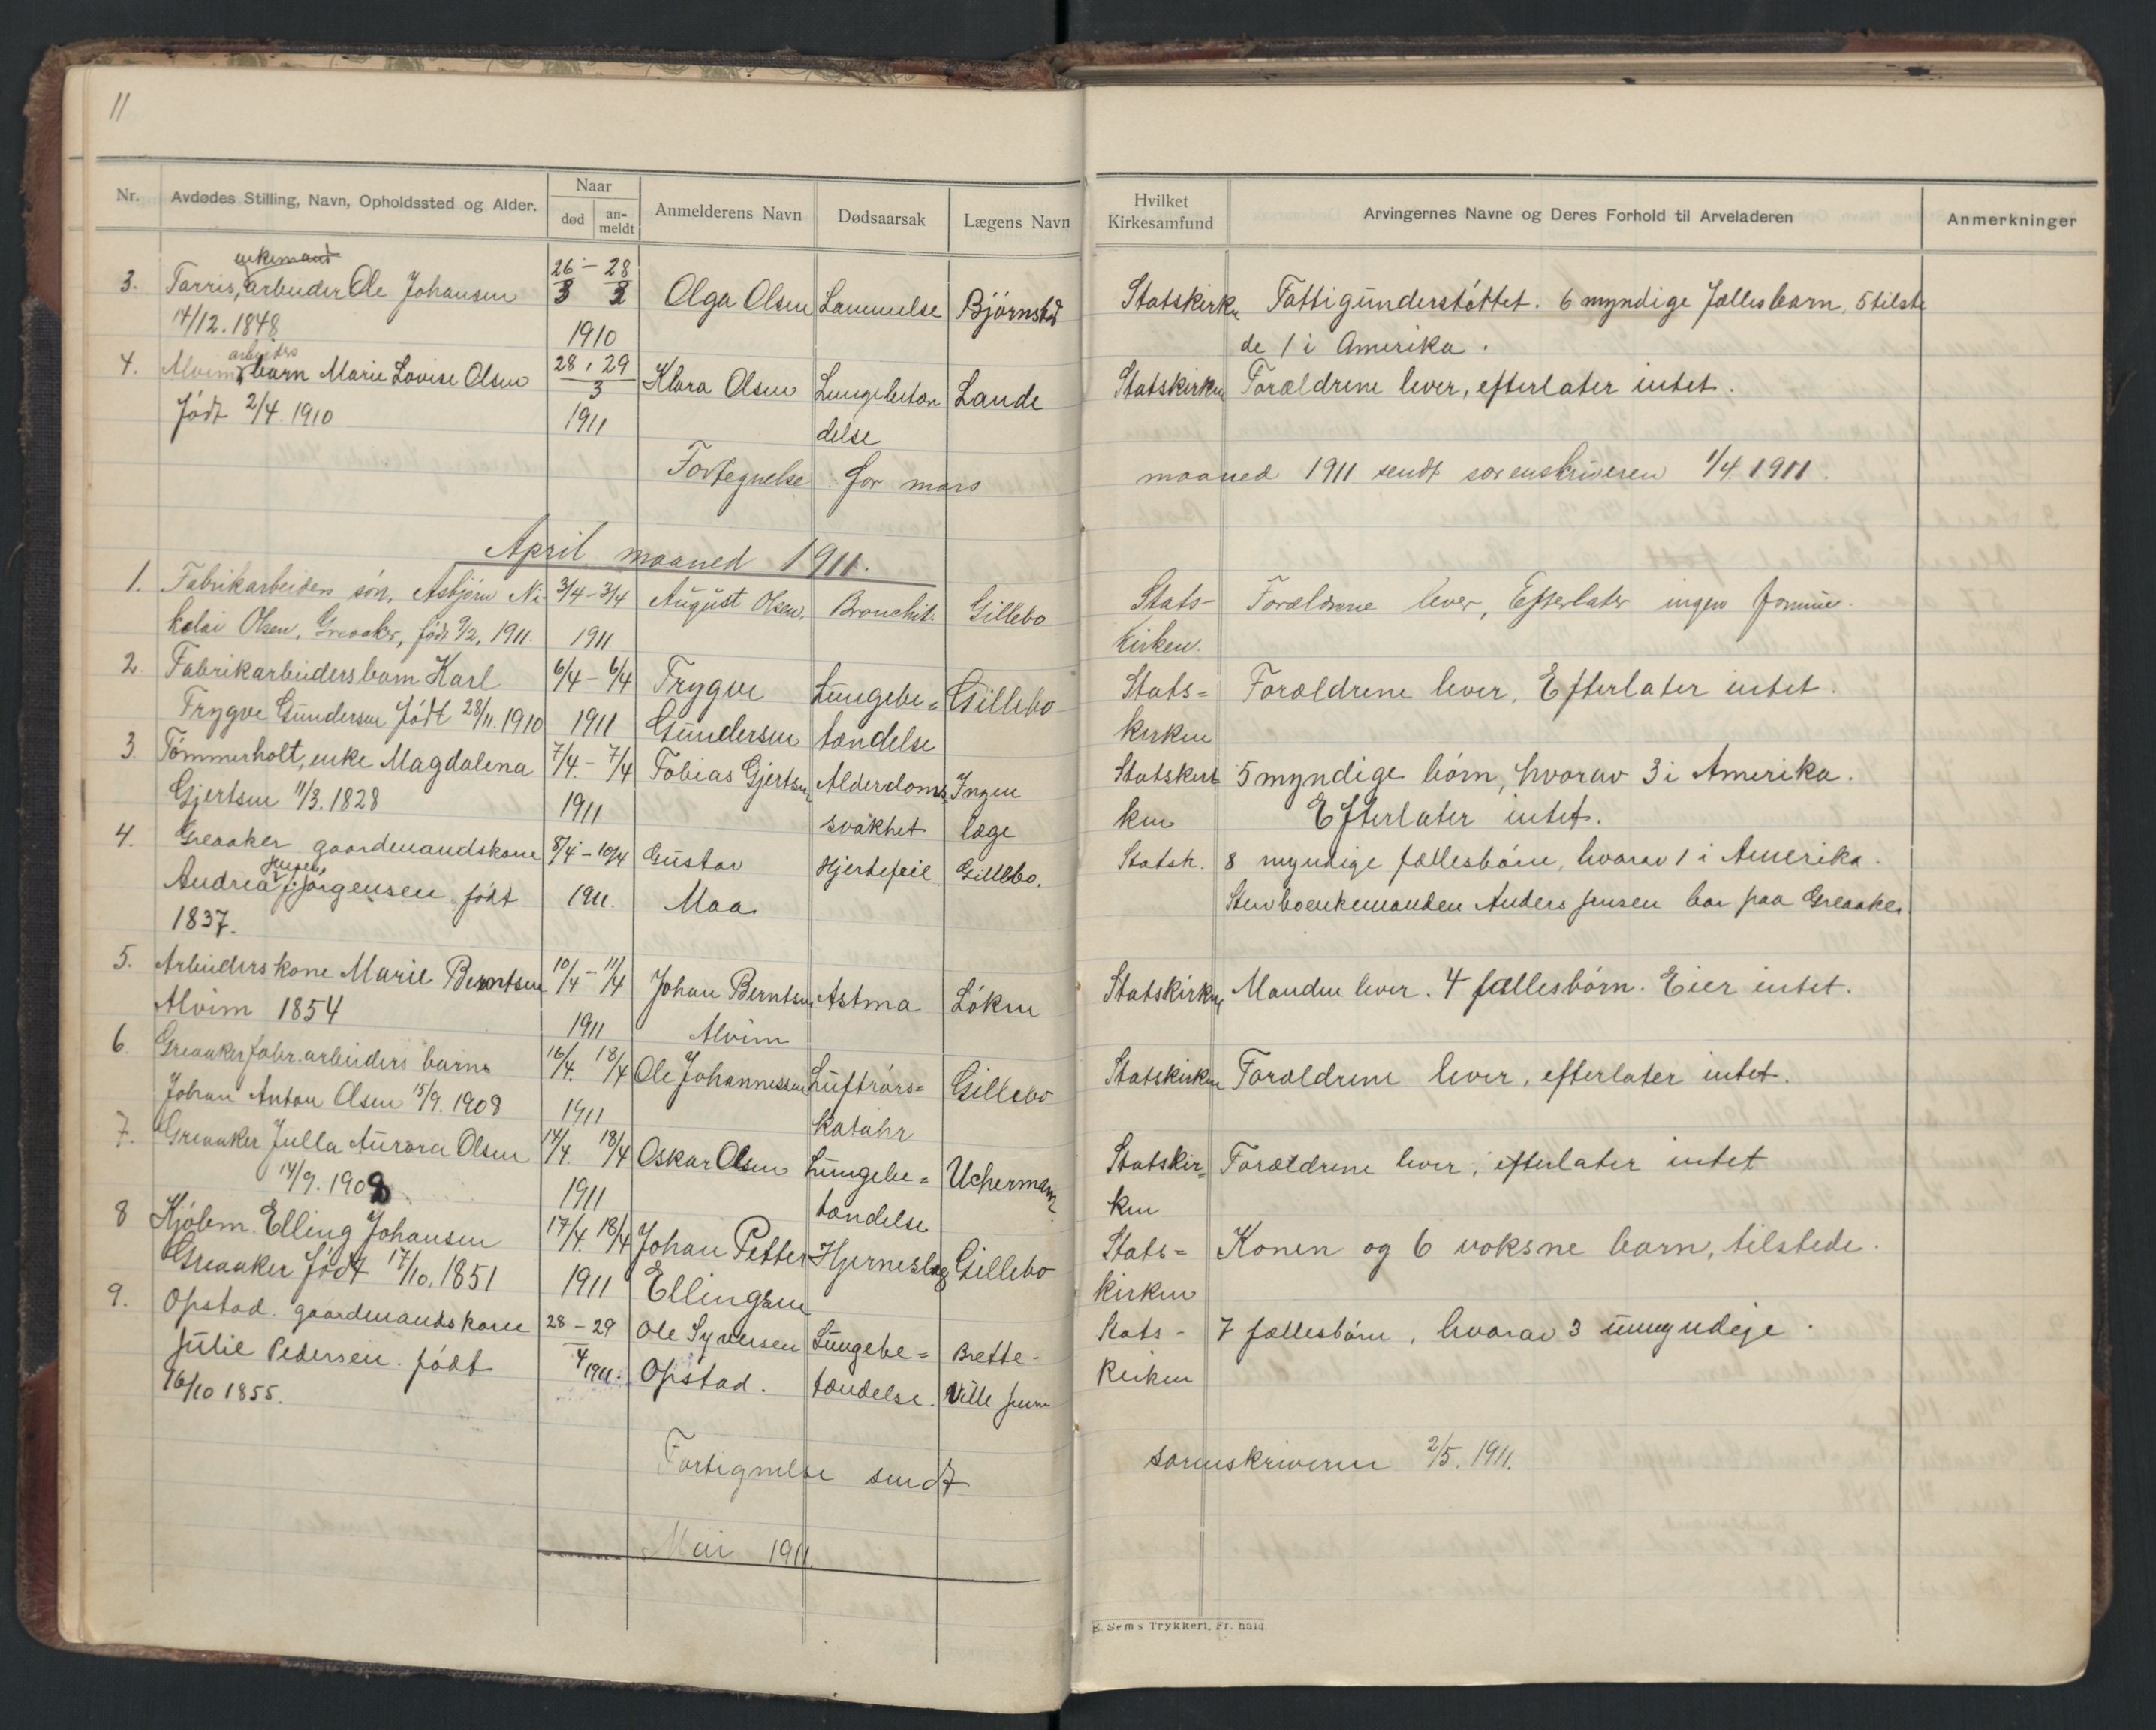 11
Nr. Avdødes Stilling, Navn, Opholdssted og Alder. Naar død an-meldt Anmelderens Navn Dødsaarsak Lægens Navn Hvilket Kirkesamfund Arvingernes Navne og Deres Forhold til Arveladeren Anmerkninger
enkemand
3. Tarris, arbeider Ole Johansen 26 - 28 Olga Olsen Lammelse Bjørnstad Statskirken Fattigunderstøttet. 6 myndige fællesbarn, 5 tilste
14/12. 1848 3 3 1910 de 1 i Amerika.
arbeiders
4. Alvim, barn Marie Lovise Olsen 28, 29 Klara Olsen Lungebetæn Lande Statskirken Forældrene lever, efterlater intet.
født 2/4. 1910 3 1911 delse
Fortegnelse for mars maaned 1911 sendt sorenskriveren 1/4. 1911.
April maaned 1911.
1. Fabrikarbeiders søn, Asbjørn Ni- 3/4 - 3/4 August Olsen. Bronchit. Gillebo Stats- Forældrene lever, Efterlater ingen formue.
kolai Olsen, Greaaker, født 9/2. 1911. 1911 kirken.
2. Fabrikarbeidersbarn Karl 6/4 - 6/4 Trygve Lungebe= Gillebo Stats= Forældrene lever. Efterlater intet.
Trygve Gundersen født 28/11. 1910 1911 Gundersen tændelse kirken
3. Tømmerholt, enke Magdalena 7/4. - 7/4 Tobias Gjertsen Alderdoms Ingen Statskir 5 myndige børn, hvorav 3 i Amerika.
Gjertsen 11/3. 1828 1911 svakhet læge ken Efterlater intet.
4. Greaaker gaardmandskone 8/4 - 10/4 Gustav Hjertefeil Gillebo. Statsk. 8 myndige fællesbørn, hvorav 1 i Amerika.
Andrea Jørgensen født 1911. Maa Anders Jensen bor paa Greaaker.
1837.
5. Arbeiderskone Marie Berntsen 10/4 - 11/4 Johan Berntsen Astma Løken Statskirken Manden lever. 4 fællesbørn. Eier intet.
Alvim 1854 1911 Alvim
6. Greaaker fabr. arbeiders barn 16/4. 18/4 Ole Johannessen Luftrørs= Gillebo Statskirken Forældrene lever, efterlater intet.
Johan Anton Olsen 15/9. 1908 1911 katahr
7. Greaaker Julla Aurora Olsen 14/4. 18/4 Oskar Olsen Lungebe= Uchermann Statskir= Forældrene lever, efterlater intet
14/9. 1908 1911 tændelse ken
8 Kjøbm. Elling Johansen 17/4. 18/4 Johan Petter Hjerneslag Gillebo Stats= Konen og 6 voksne barn, tilstede.
Greaaker født 17/10. 1851 1911 Ellingsen kirken
9. Opstad. gaardmandskone 28 - 29 Ole Syversen Lungebe= Brette- Stats- 7 fællesbørn, hvorav 3 umyndige.
Julie Pedersen. født 4 1911. Opstad. tændelse. Ville jun kirken
16/10 1855.
Fortegnelse sendt sorenskriveren 2/5. 1911.
Mai 1911.
E. Sems Trykkeri, Fr. hald